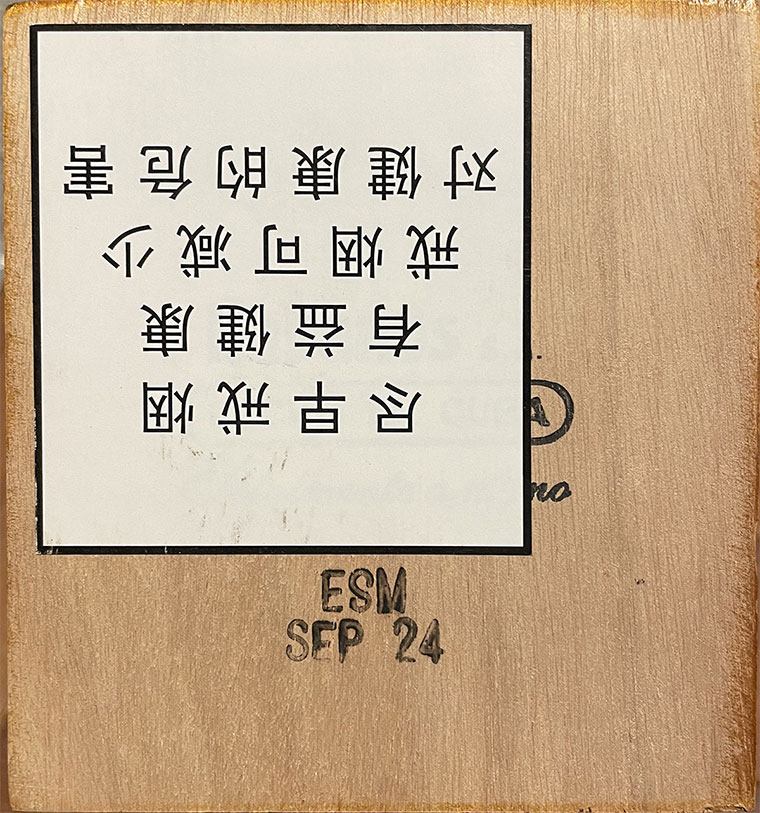 尽早戒烟
有益健康
戒烟可减少
对健康的危害
ESM
SEP 24